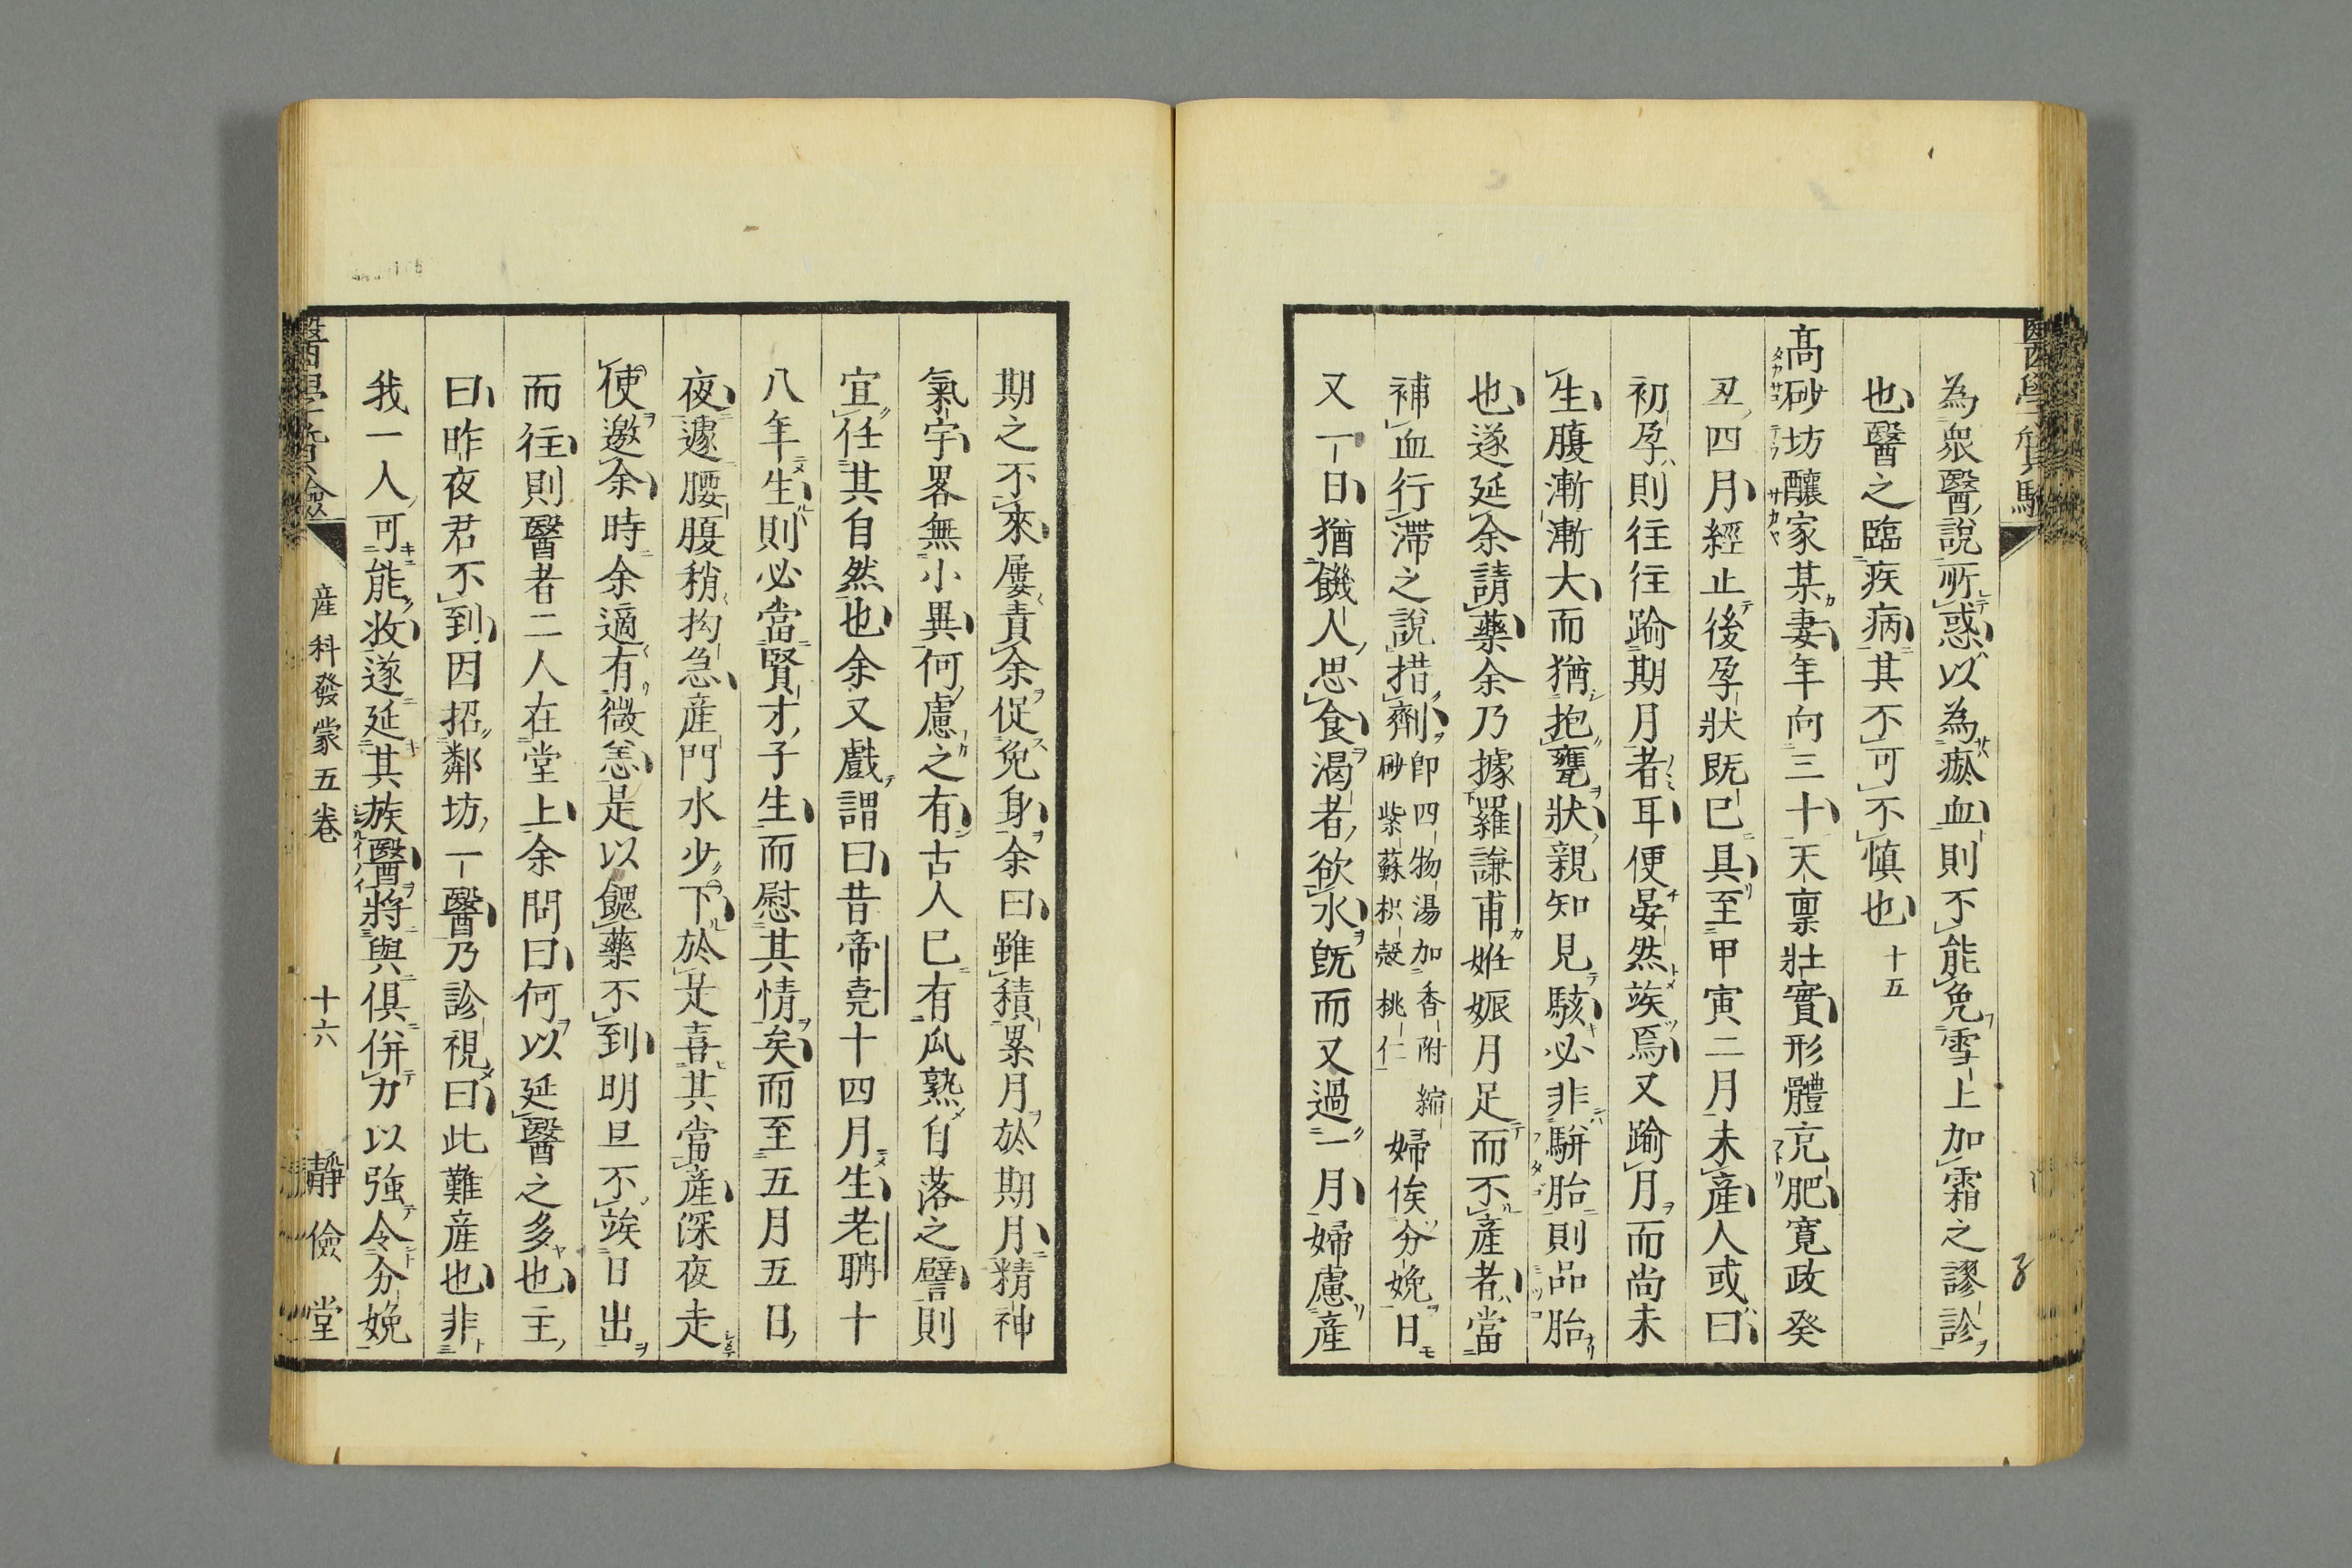 為衆醫說所惑以為瘀血則不能免雪上加霜之謬診
也醫之臨疾病其不可不慎也 十五
髙砂坊釀家某妻年向三十天稟壯實形體充肥寛政癸
丑四月經止後孕狀既已具至甲寅二月未產人或曰
初孕則往往踰期月者耳便晏然竢焉又踰月而尚未
生腹漸漸大而猶抱甕狀親知見駭必非駢胎則品胎
也遂延余請藥余乃據羅謙甫姙娠月足而不產者當
補血行滯之說措劑卽四物湯加香附縮砂紫蘇枳殼桃仁婦俟分娩日
又一日猶饑人思食渴者欲水旣而又過一月婦慮產
期之不來屢責余促免身余曰雖積累月於期月精神
氣宇畧無小異何慮之有古人已有瓜熟自落之譬則
宜任其自然也余又戲謂曰昔帝堯十四月生老聃十
八年生則必當賢才子生而慰其情矣而至五月五日
夜遽腰腹稍拘急產門水少下於是喜其當產深夜走
使邀余時余適有微恙是以餽藥不到明旦不竢日出
而往則醫者二人在堂上余問曰何以延醫之多也主
曰昨夜君不到因招鄰坊一醫乃診視曰此難產也非
我一人可能收遂延其族醫將與俱併力以強令分娩
產科發蒙五卷 十六 靜儉堂